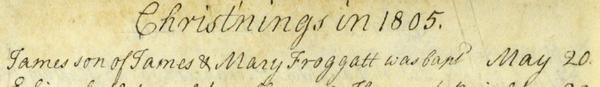 Christ'nings in 1805.
James son of James & Mary Froggatt was bapd May 20.